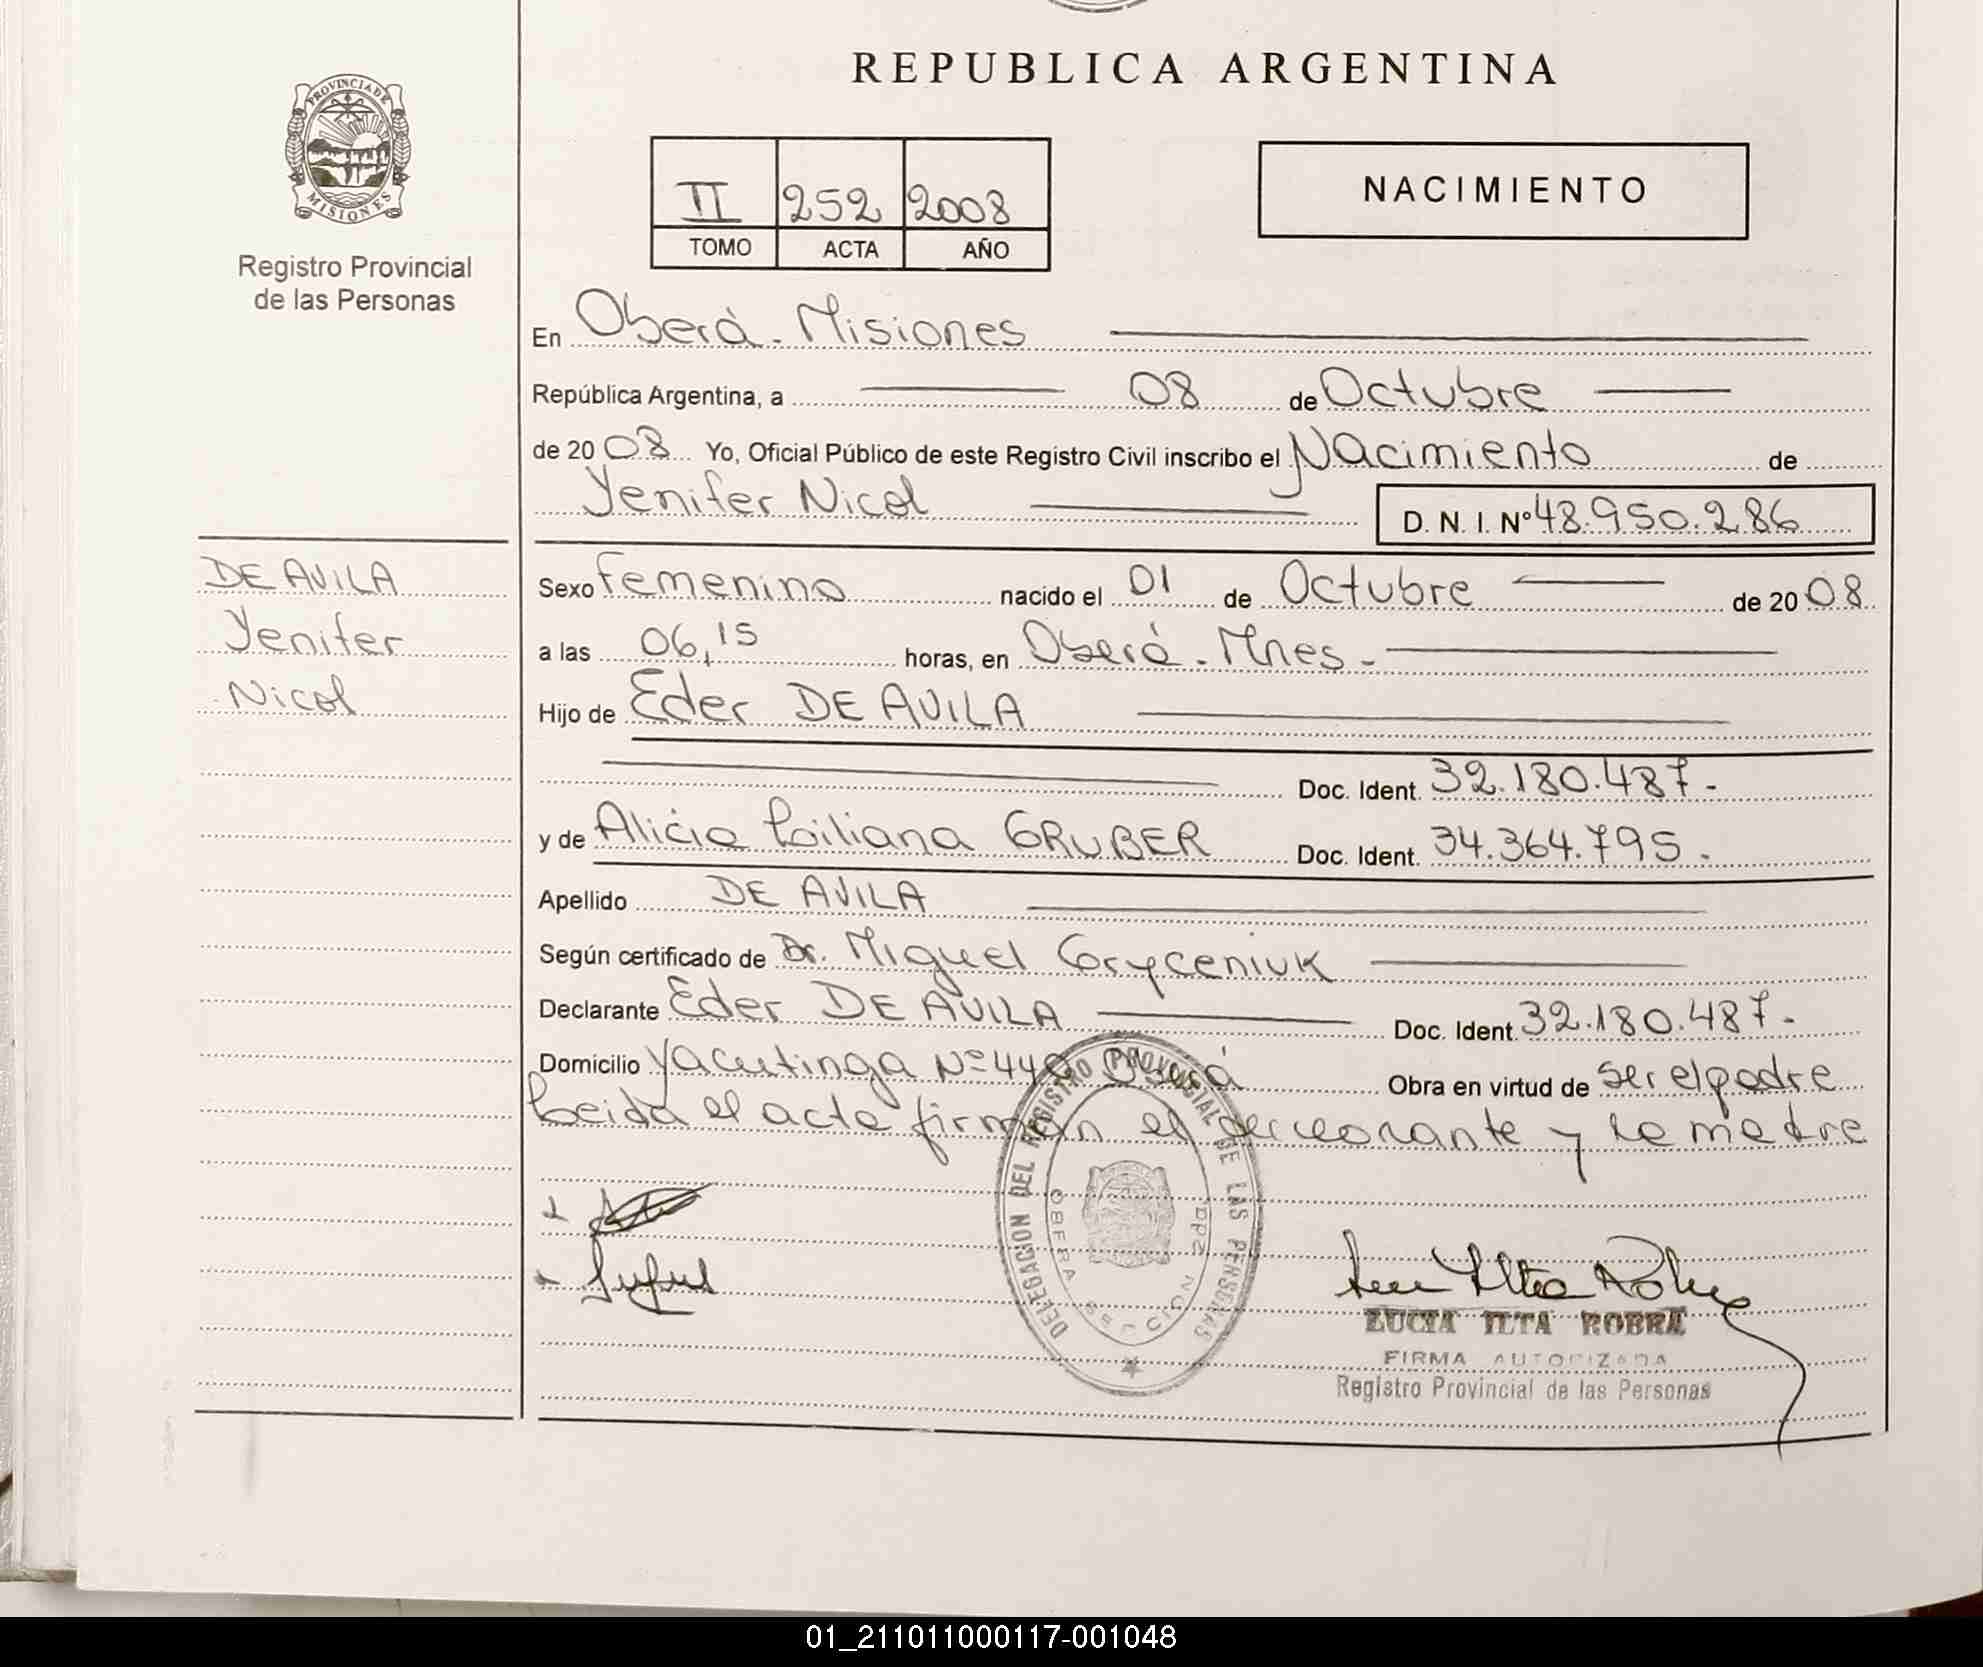 REPUBLICA ARGENTINA
PROVINCIA DE
MISIONES
Registro Provincial
de las Personas
II 252 2008
TOMO ACTA AÑO
NACIMIENTO
En Oberá - Misiones
República Argentina, a 08 de Octubre
de 20 08 Yo, Oficial Público de este Registro Civil inscribo el Nacimiento de
Yenifer Nicol D. N. I. Nº 48.950.286
DE AVILA
Yenifer
Nicol
Sexo Femenino nacido el 01 de Octubre de 20 08
a las 06,15 horas, en Oberá - Mnes -
Hijo de Eder DE AVILA
Doc. Ident. 32.180.487.-
y de Alicia Liliana GRUBER Doc. Ident. 34.364.795.
Apellido DE AVILA
Según certificado de Dr. Miguel Gryceniuk
Declarante Eder DE AVILA Doc. Ident. 32.180.487.-
Domicilio Yacutinga Nº 440 Oberá Obra en virtud de ser el padre
Leida el acta firman el declarante y la madre
DELEGACION DEL REGISTRO PROVINCIAL DE LAS PERSONAS
OBERA SECCION
LUCIA ILTA ROBRA
FIRMA AUTORIZADA
Registro Provincial de las Personas
01_211011000117-001048